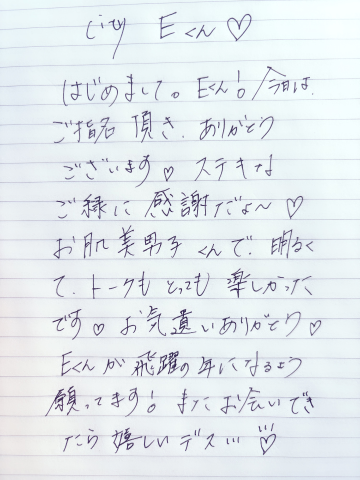 city Eくん♡
はじめまして。Eくん!今日は、
ご指名 頂き、ありがとう
ございます♡ ステキな
ご縁に 感謝だょ〜♡
お肌美男子くんで、明るく
て、トークも とっても 楽しかった
です♡ お気遣いありがとう♡
Eくんが飛躍の年になるよう
願ってます! またお会いでき
たら嬉しいデス…♡